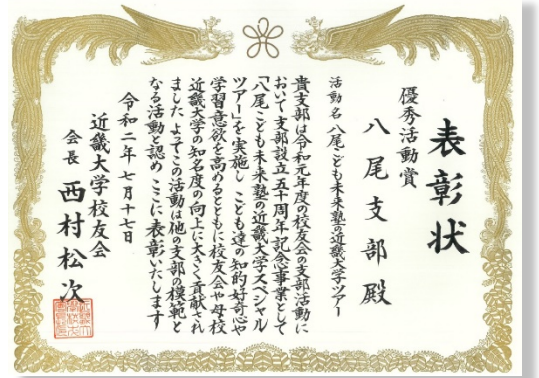 表彰状
優秀活動賞
八尾支部殿
活動名 八尾こども未来塾の近畿大学ツアー
貴支部は令和元年度の校友会の支部活動に
おいて支部設立五十周年記念事業として
「八尾こども未来塾の近畿大学スペシャル
ツアー」を実施し こども達の知的好奇心や
学習意欲を高めるとともに校友会や母校
近畿大学の知名度の向上に大きく貢献され
ました よってこの活動は他の支部の模範と
なる活動と認め ここに表彰いたします
令和二年七月十七日
近畿大学校友会
会長 西村松次